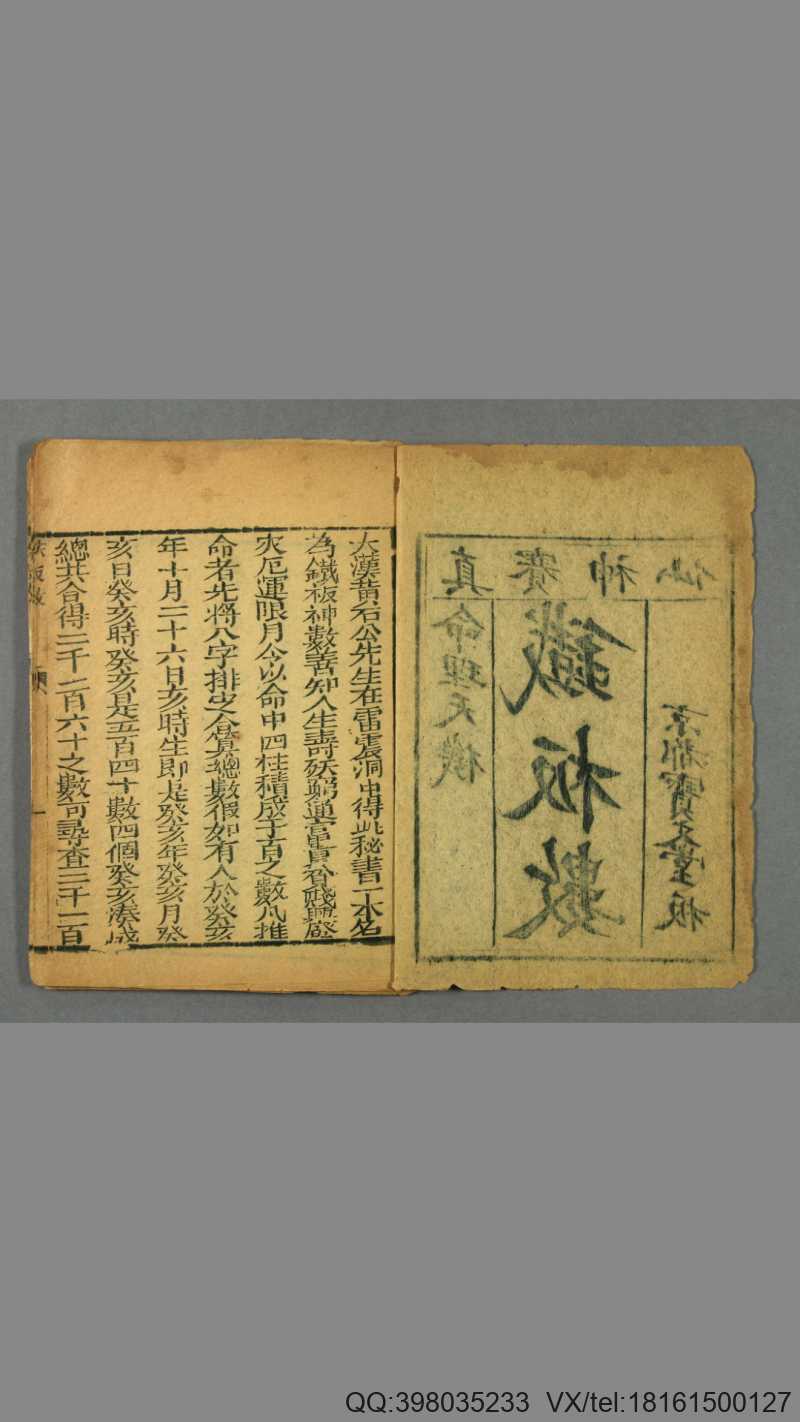 真賽神仙
命理天機
鐵板數
京都寶文堂板
大漢黄石公先生在雷震洞中得此秘書一本名
為鐵板神數善知人生壽殀窮通富貴貧賤興廢
灾厄運限月令以命中四柱積成千百之數凡推
命者先將八字排出合算總數假如有人於癸亥
年十月二十六日亥時生即是癸亥年癸亥月癸
亥日癸亥時癸亥是五百四十數四個癸亥湊成
總共合得二千一百六十之數可尋查二千一百
板數
一
QQ:398035233 VX/tel:18161500127